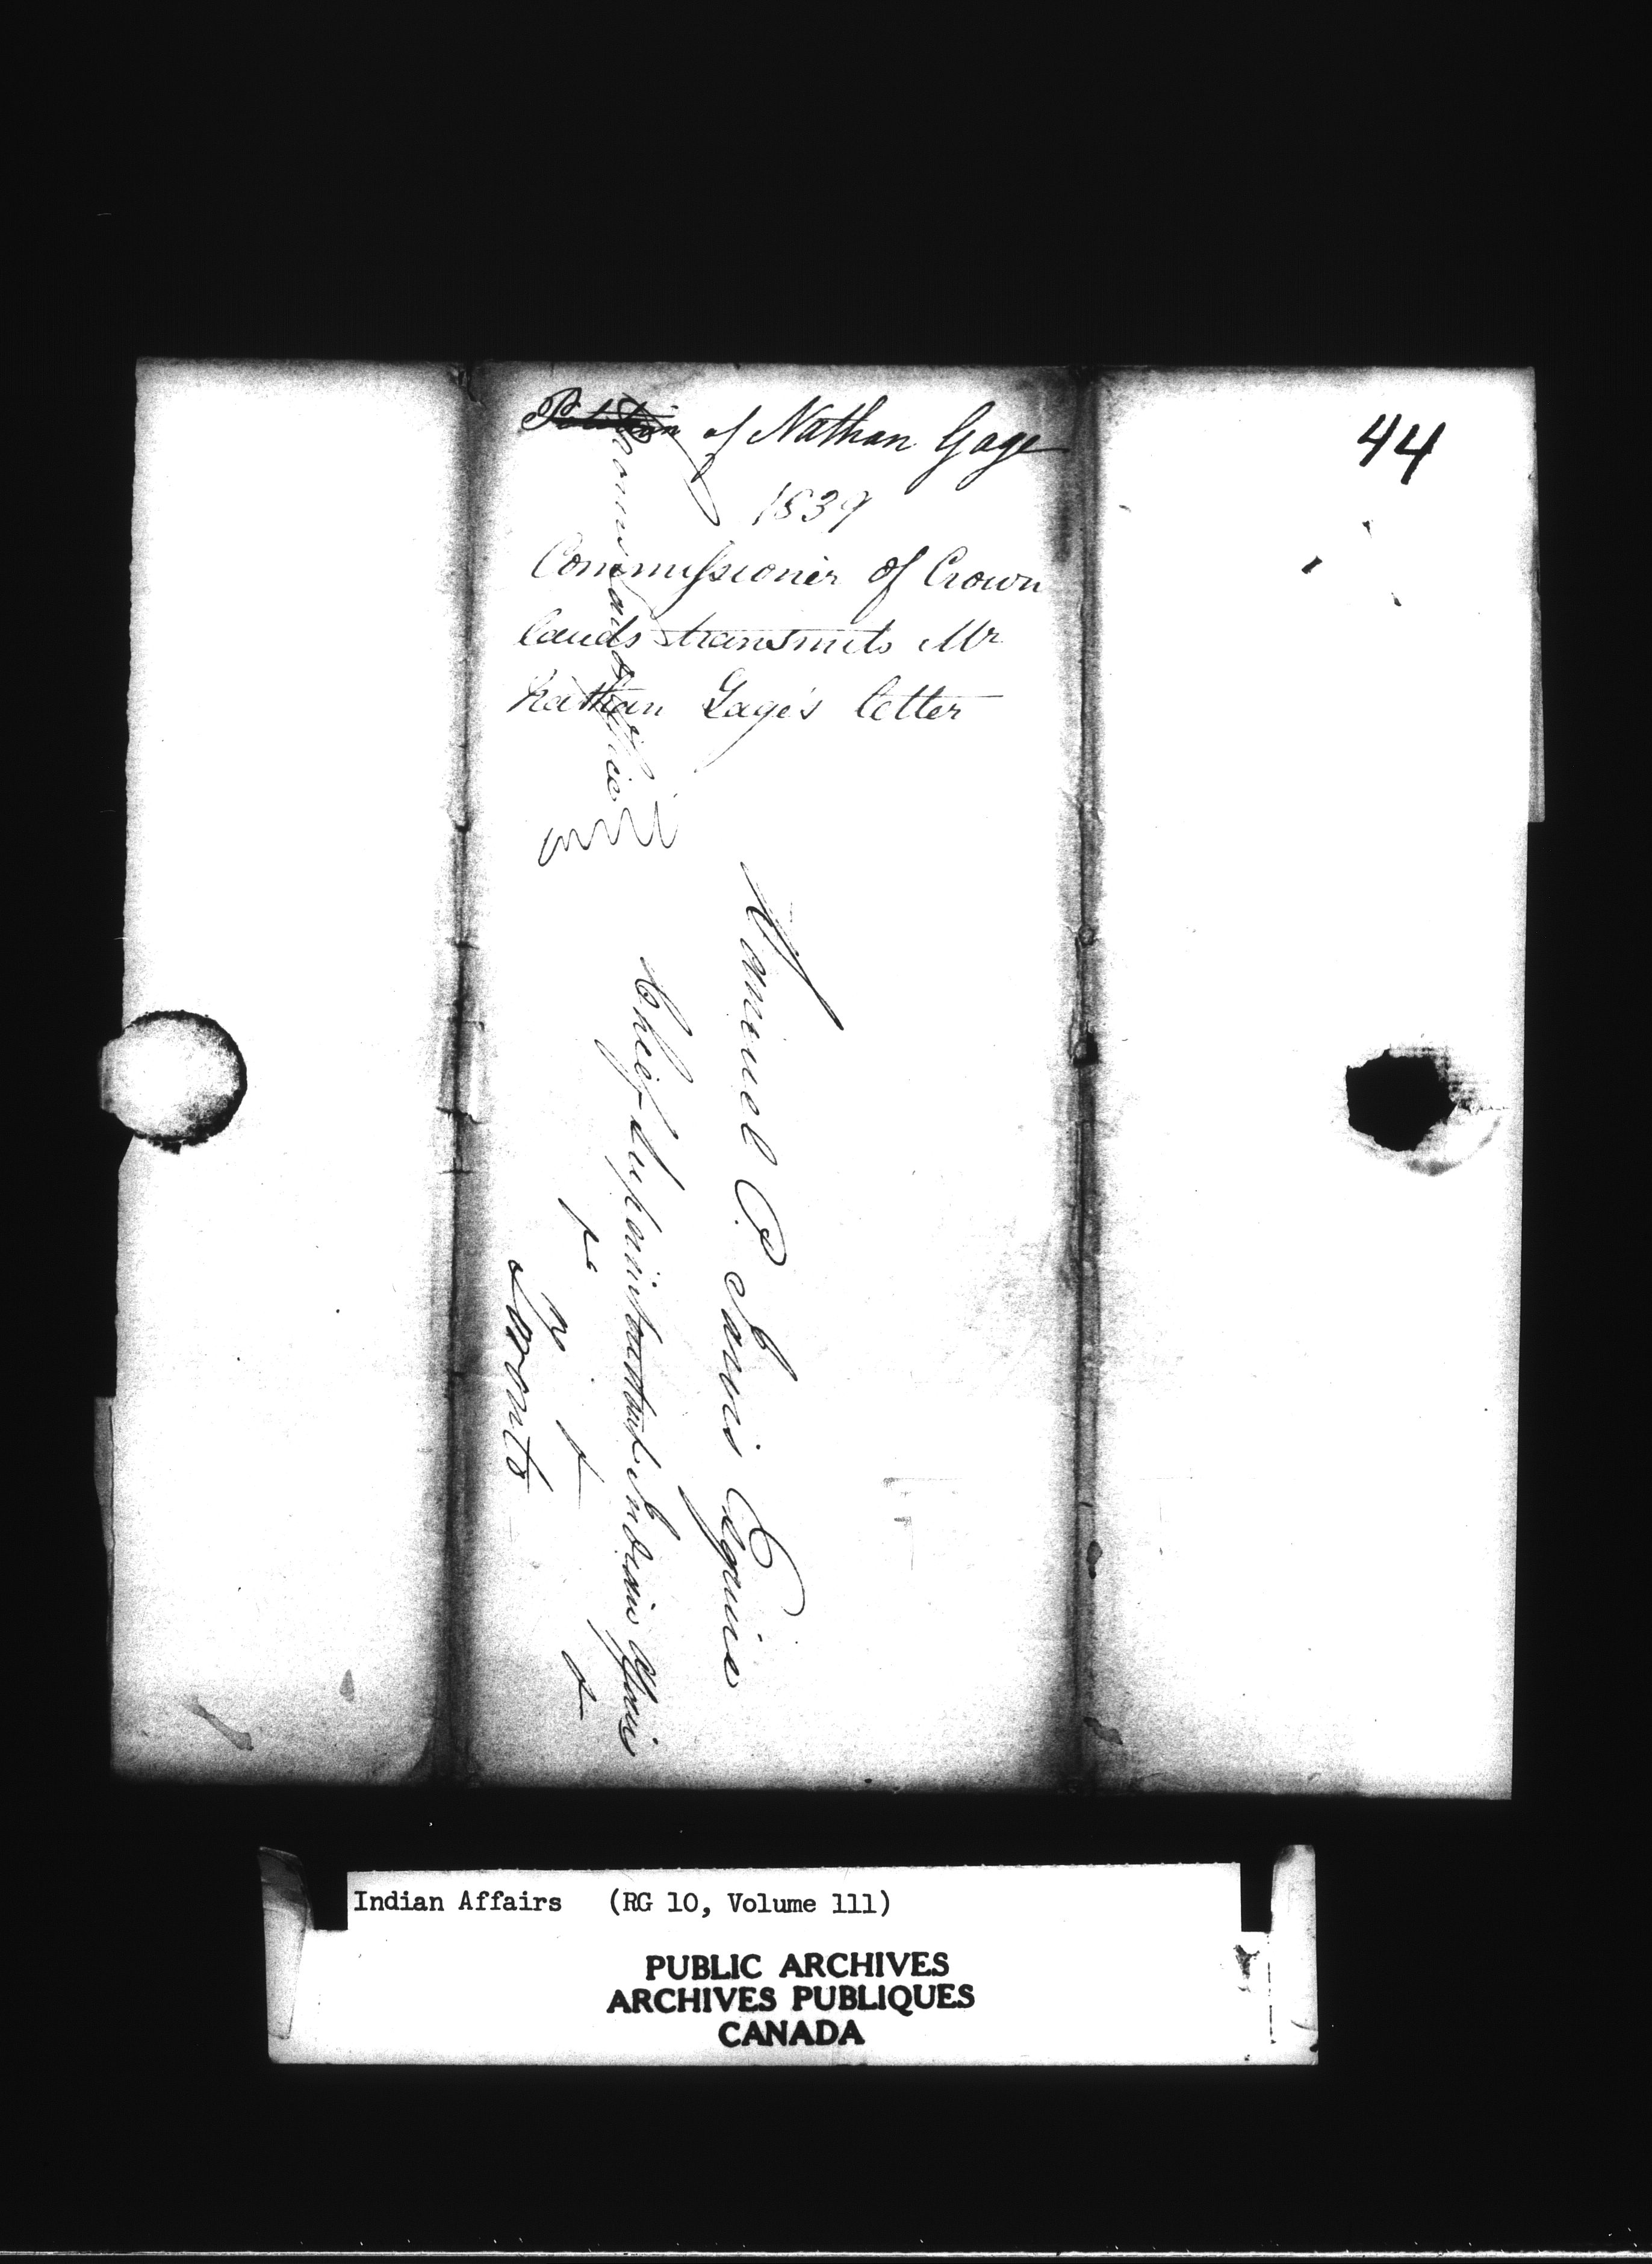 44
~~Petition~~ of Nathan Gage
1839
Commissioner of Crown
lands transmits Mr
Nathan Gage's letter
Crown Lands Office
P. Jarvis Esquire
Chief Superintendent Indian Affairs
Toronto
Indian Affairs (RG 10, Volume 111)
PUBLIC ARCHIVES
ARCHIVES PUBLIQUES
CANADA